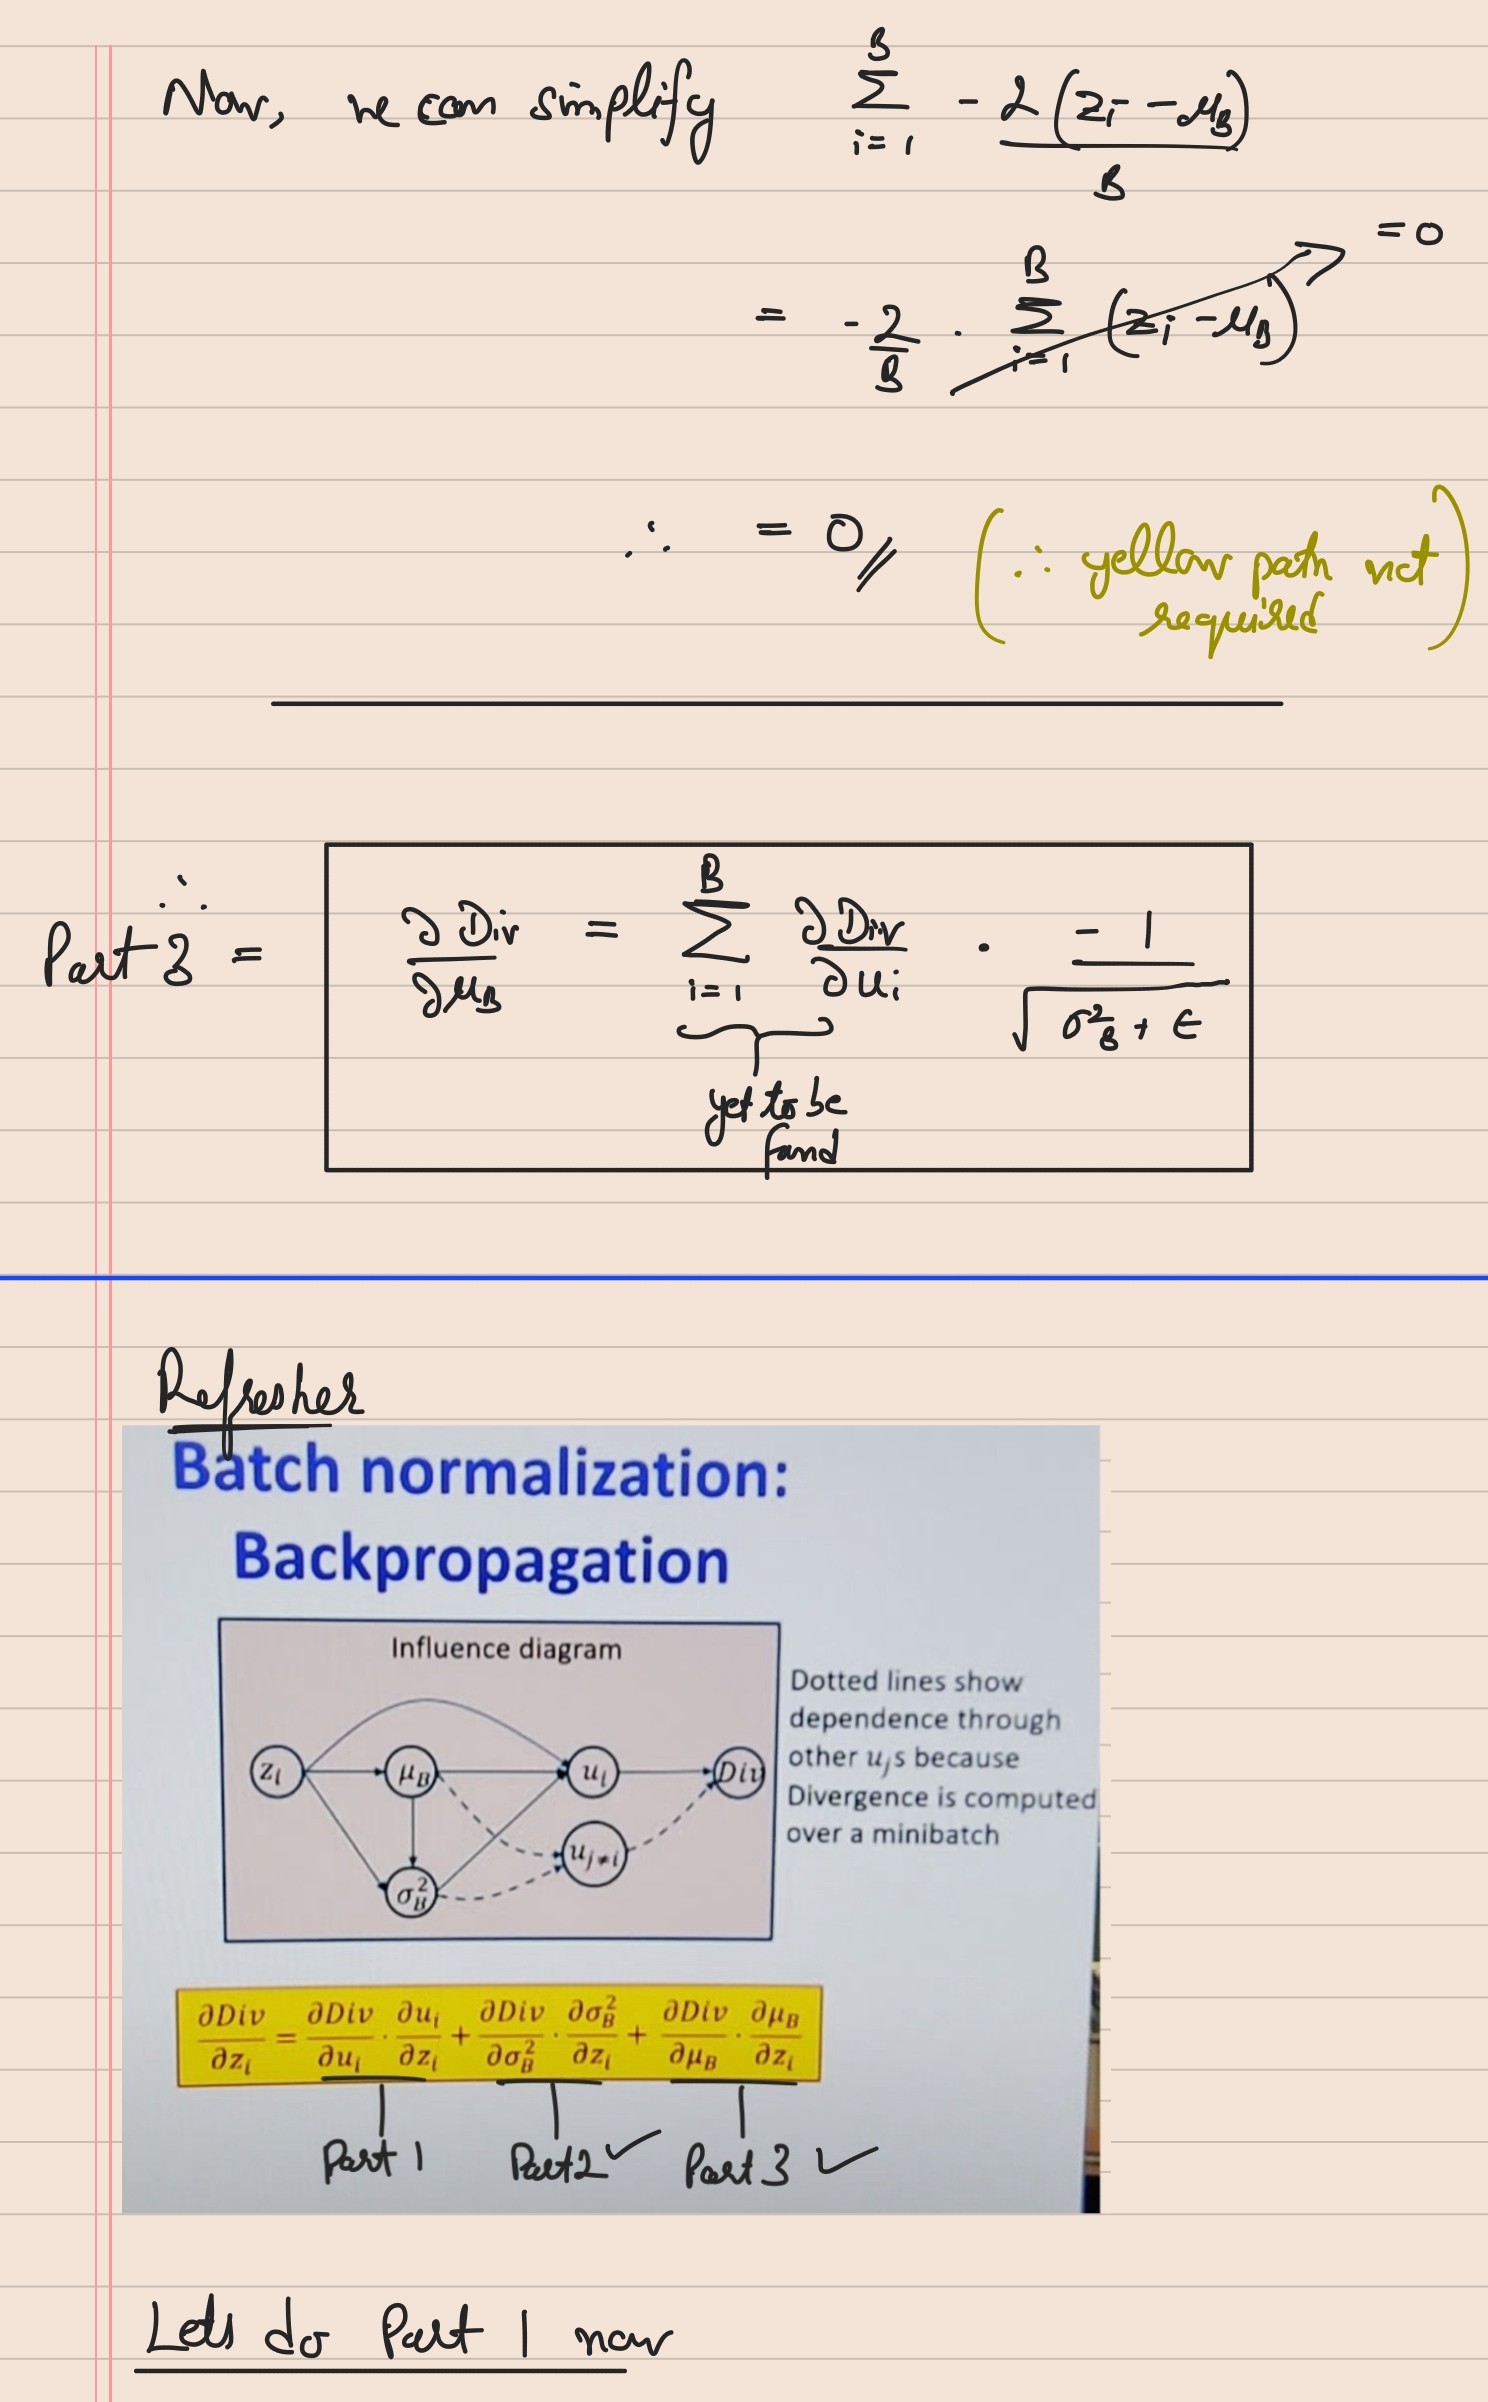 Now, we can simplify \sum_{i=1}^{B} \frac{-2(z_i - \mu_B)}{B}
= -\frac{2}{B} \cdot \sum_{i=1}^{B} (z_i - \mu_B) = 0
∴ = 0 // (∴ yellow path not
required)
∴
Part 3 = \frac{∂Div}{∂\mu_B} = \sum_{i=1}^{B} \frac{∂Div}{∂u_i} \cdot \frac{-1}{\sqrt{\sigma_B^2 + ϵ}}
yet to be
found
Refresher
Batch normalization:
Backpropagation
Influence diagram
Dotted lines show
dependence through
other u_j s because
Divergence is computed
over a minibatch
z_i μ_B u_i Div
u_{j≠i}
σ_B^2
\frac{∂Div}{∂z_i} = \frac{∂Div}{∂u_i} \cdot \frac{∂u_i}{∂z_i} + \frac{∂Div}{∂σ_B^2} \cdot \frac{∂σ_B^2}{∂z_i} + \frac{∂Div}{∂μ_B} \cdot \frac{∂μ_B}{∂z_i}
Part 1 Part 2 ✓ Part 3 ✓
Lets do Part 1 now